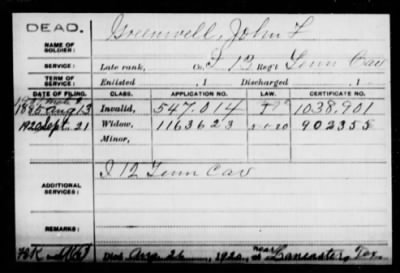 DEAD.
NAME OF SOLDIER:
Greenwell, John F
SERVICE:
Late rank, Co. I 12 Reg't Tenn Cav
TERM OF SERVICE:
Enlisted , 1 Discharged , 1
DATE OF FILING. CLASS. APPLICATION NO. LAW. CERTIFICATE NO.
Aug 13 Invalid, 547.014 1038.901
1920 Sept. 21 Widow, 1163623 902355
Minor,
ADDITIONAL SERVICES:
I 12 Tenn Cav
REMARKS:
Died Aug. 26 , 1920, near at Lancaster, Tex